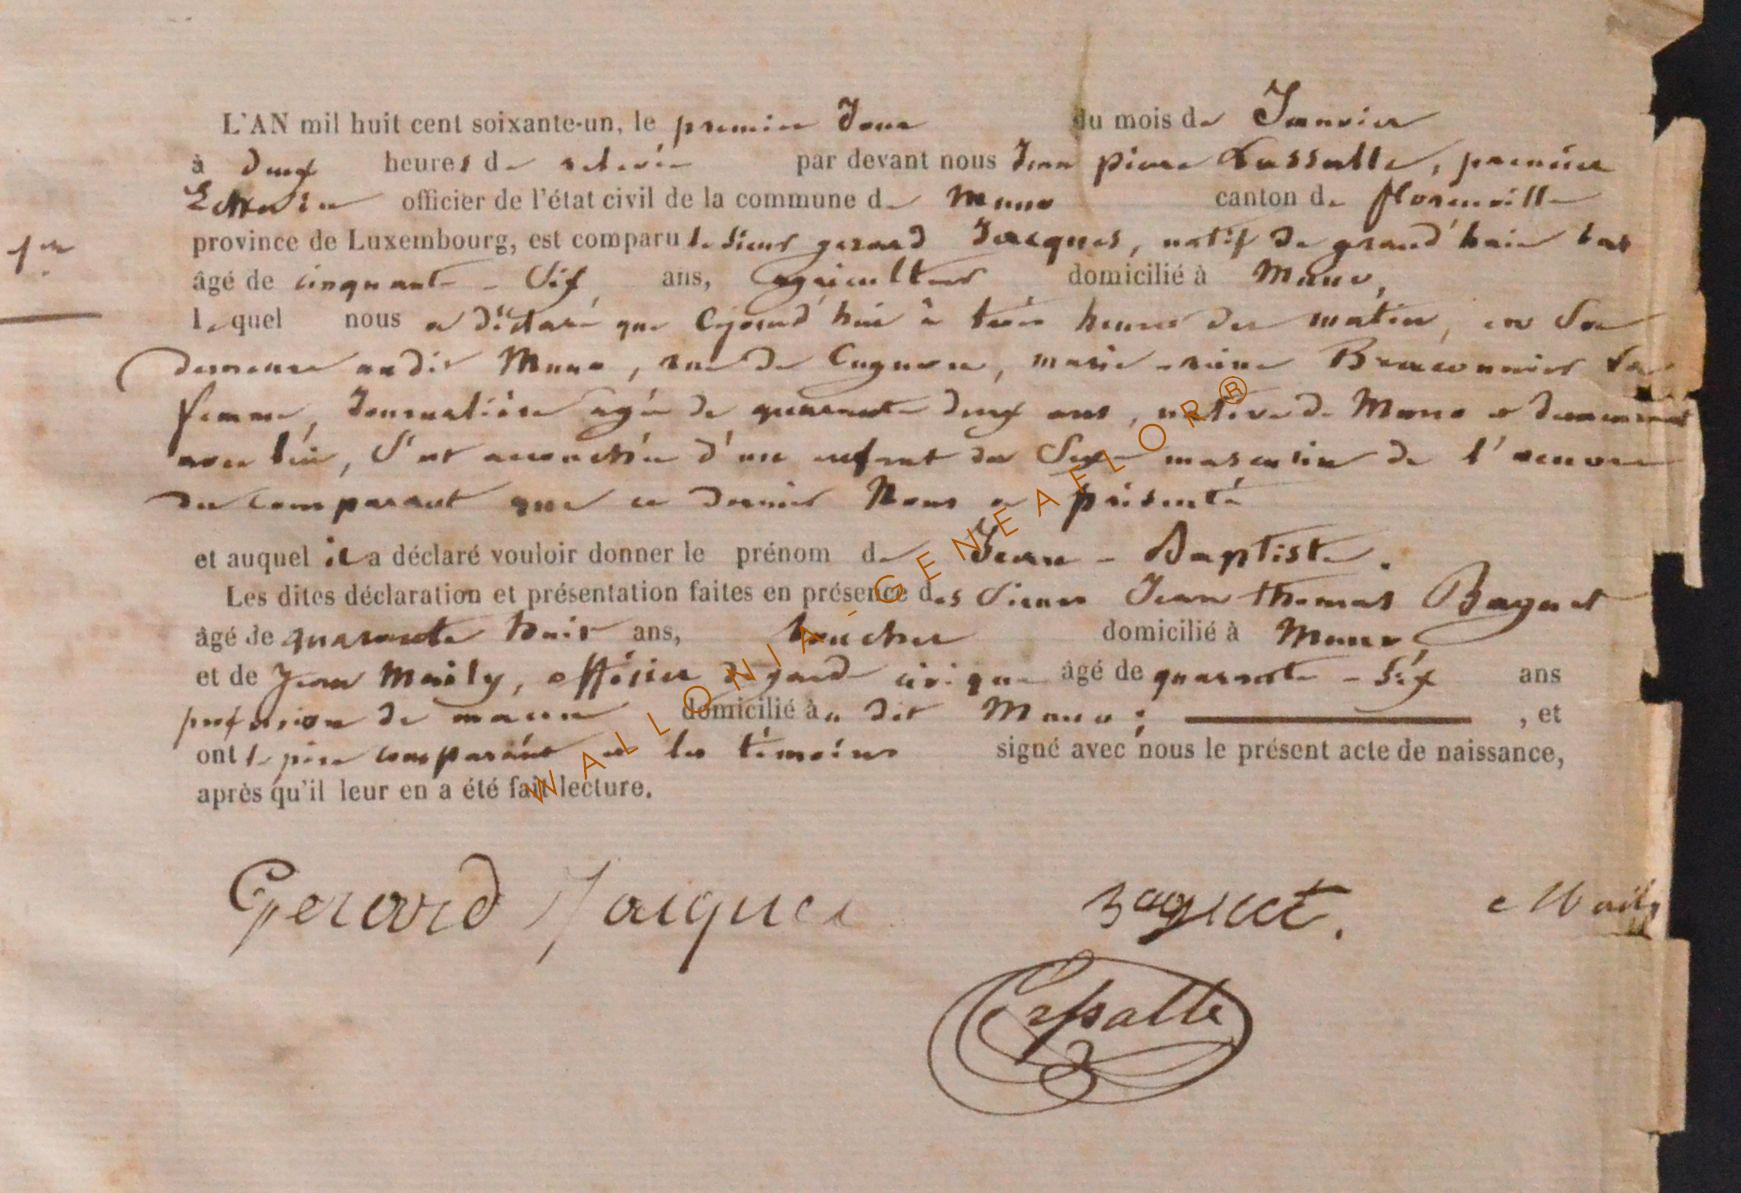 L'AN mil huit cent soixante-un, le premier Jour du mois de Janvier
à deux heures de relevée par devant nous Jean pierre Lassalle, premier
Echevin officier de l'état civil de la commune de Muno canton de florenville
province de Luxembourg, est comparu le sieur gerard Jacques, natif de grand'haie
âgé de cinquante - Six ans, agriculteur domicilié à Muno,
lequel nous a déclaré que cejourd'hui à trois heures du matin, en Sa
demeure audit Muno, rue de Cugnon, marie - reine Braconnier Sa
femme, Journalière agée de quarante deux ans, native de Muno et demeurant
avec lui, S'est accouchée d'un enfant du Sexe masculin de l'oeuvre
du comparant que ce dernier Nous a présenté
et auquel il a déclaré vouloir donner le prénom de Jean - Baptiste.
Les dites déclaration et présentation faites en présence des Sieurs Jean thomas Baguet
âgé de quarante huit ans, boucher domicilié à Muno,
et de Jean Maily, officier de gard civique âgé de quarante - Six ans
profession de macon domicilié à u dit Muno ; , et
ont le père comparant et les témoins signé avec nous le présent acte de naissance,
après qu'il leur en a été fait lecture.
1er
Gerard Jacques
Baguet.
Maily
Lassalle
WALLONIA-GENEAFLOR®